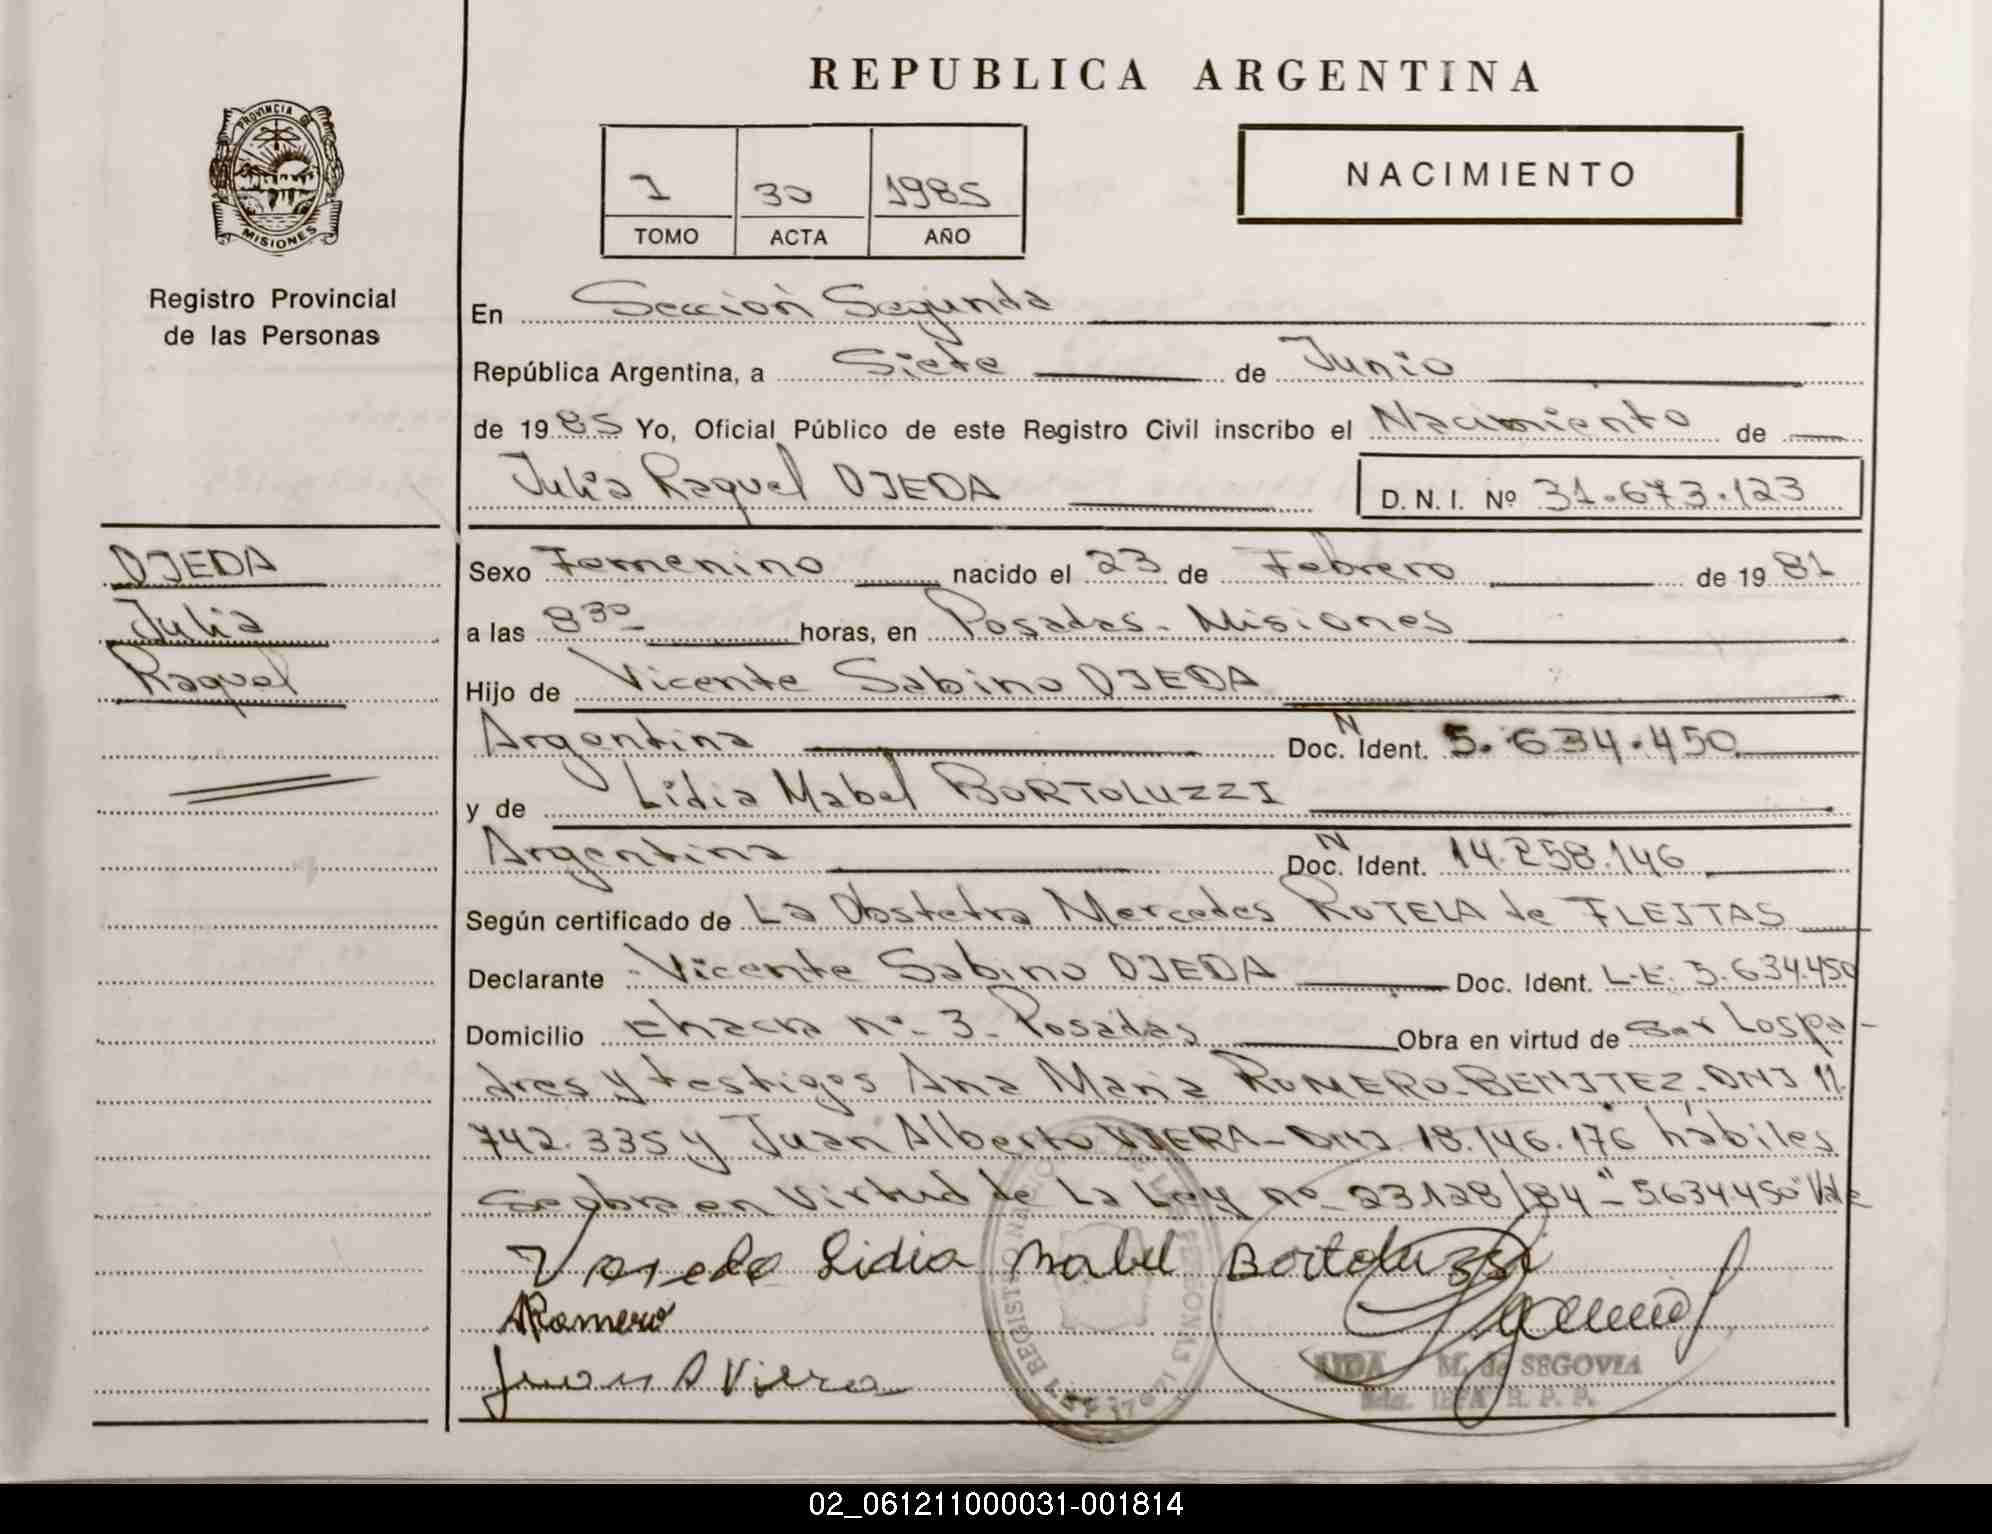 REPUBLICA ARGENTINA
PROVINCIA DE
MISIONES
Registro Provincial
de las Personas
1 30 1985
TOMO ACTA AÑO
NACIMIENTO
En Sección Segunda
República Argentina, a Siete de Junio
de 1985 Yo, Oficial Público de este Registro Civil inscribo el Nacimiento de
Julia Raquel OJEDA D. N. I. Nº 31.673.123
OJEDA
Julia
Raquel
Sexo Femenino nacido el 23 de Febrero de 1981
a las 8 30 horas, en Posadas - Misiones
Hijo de Vicente Sabino OJEDA
Argentina Doc. Ident. 5.634.450
y de Lidia Mabel BORTOLUZZI
Argentina Doc. Ident. 14.258.146
Según certificado de La Obstetra Mercedes ROTELA de FLEITAS
Declarante Vicente Sabino OJEDA Doc. Ident. L.E. 5.634.450
Domicilio Chacra nº 3 - Posadas Obra en virtud de Ser Los pa-
dres y testigos Ana Maria ROMERO - BENITEZ - DNI 11.
742.335 y Juan Alberto VIERA - DNI 18.146.176 hábiles
Se obra en virtud de La Ley nº 23128/84 - "5634450" Vale
V Ojeda Lidia Mabel Bortoluzzi
A Romero
Juan A Viera
M. de SEGOVIA
R. P. P.
02_061211000031-001814